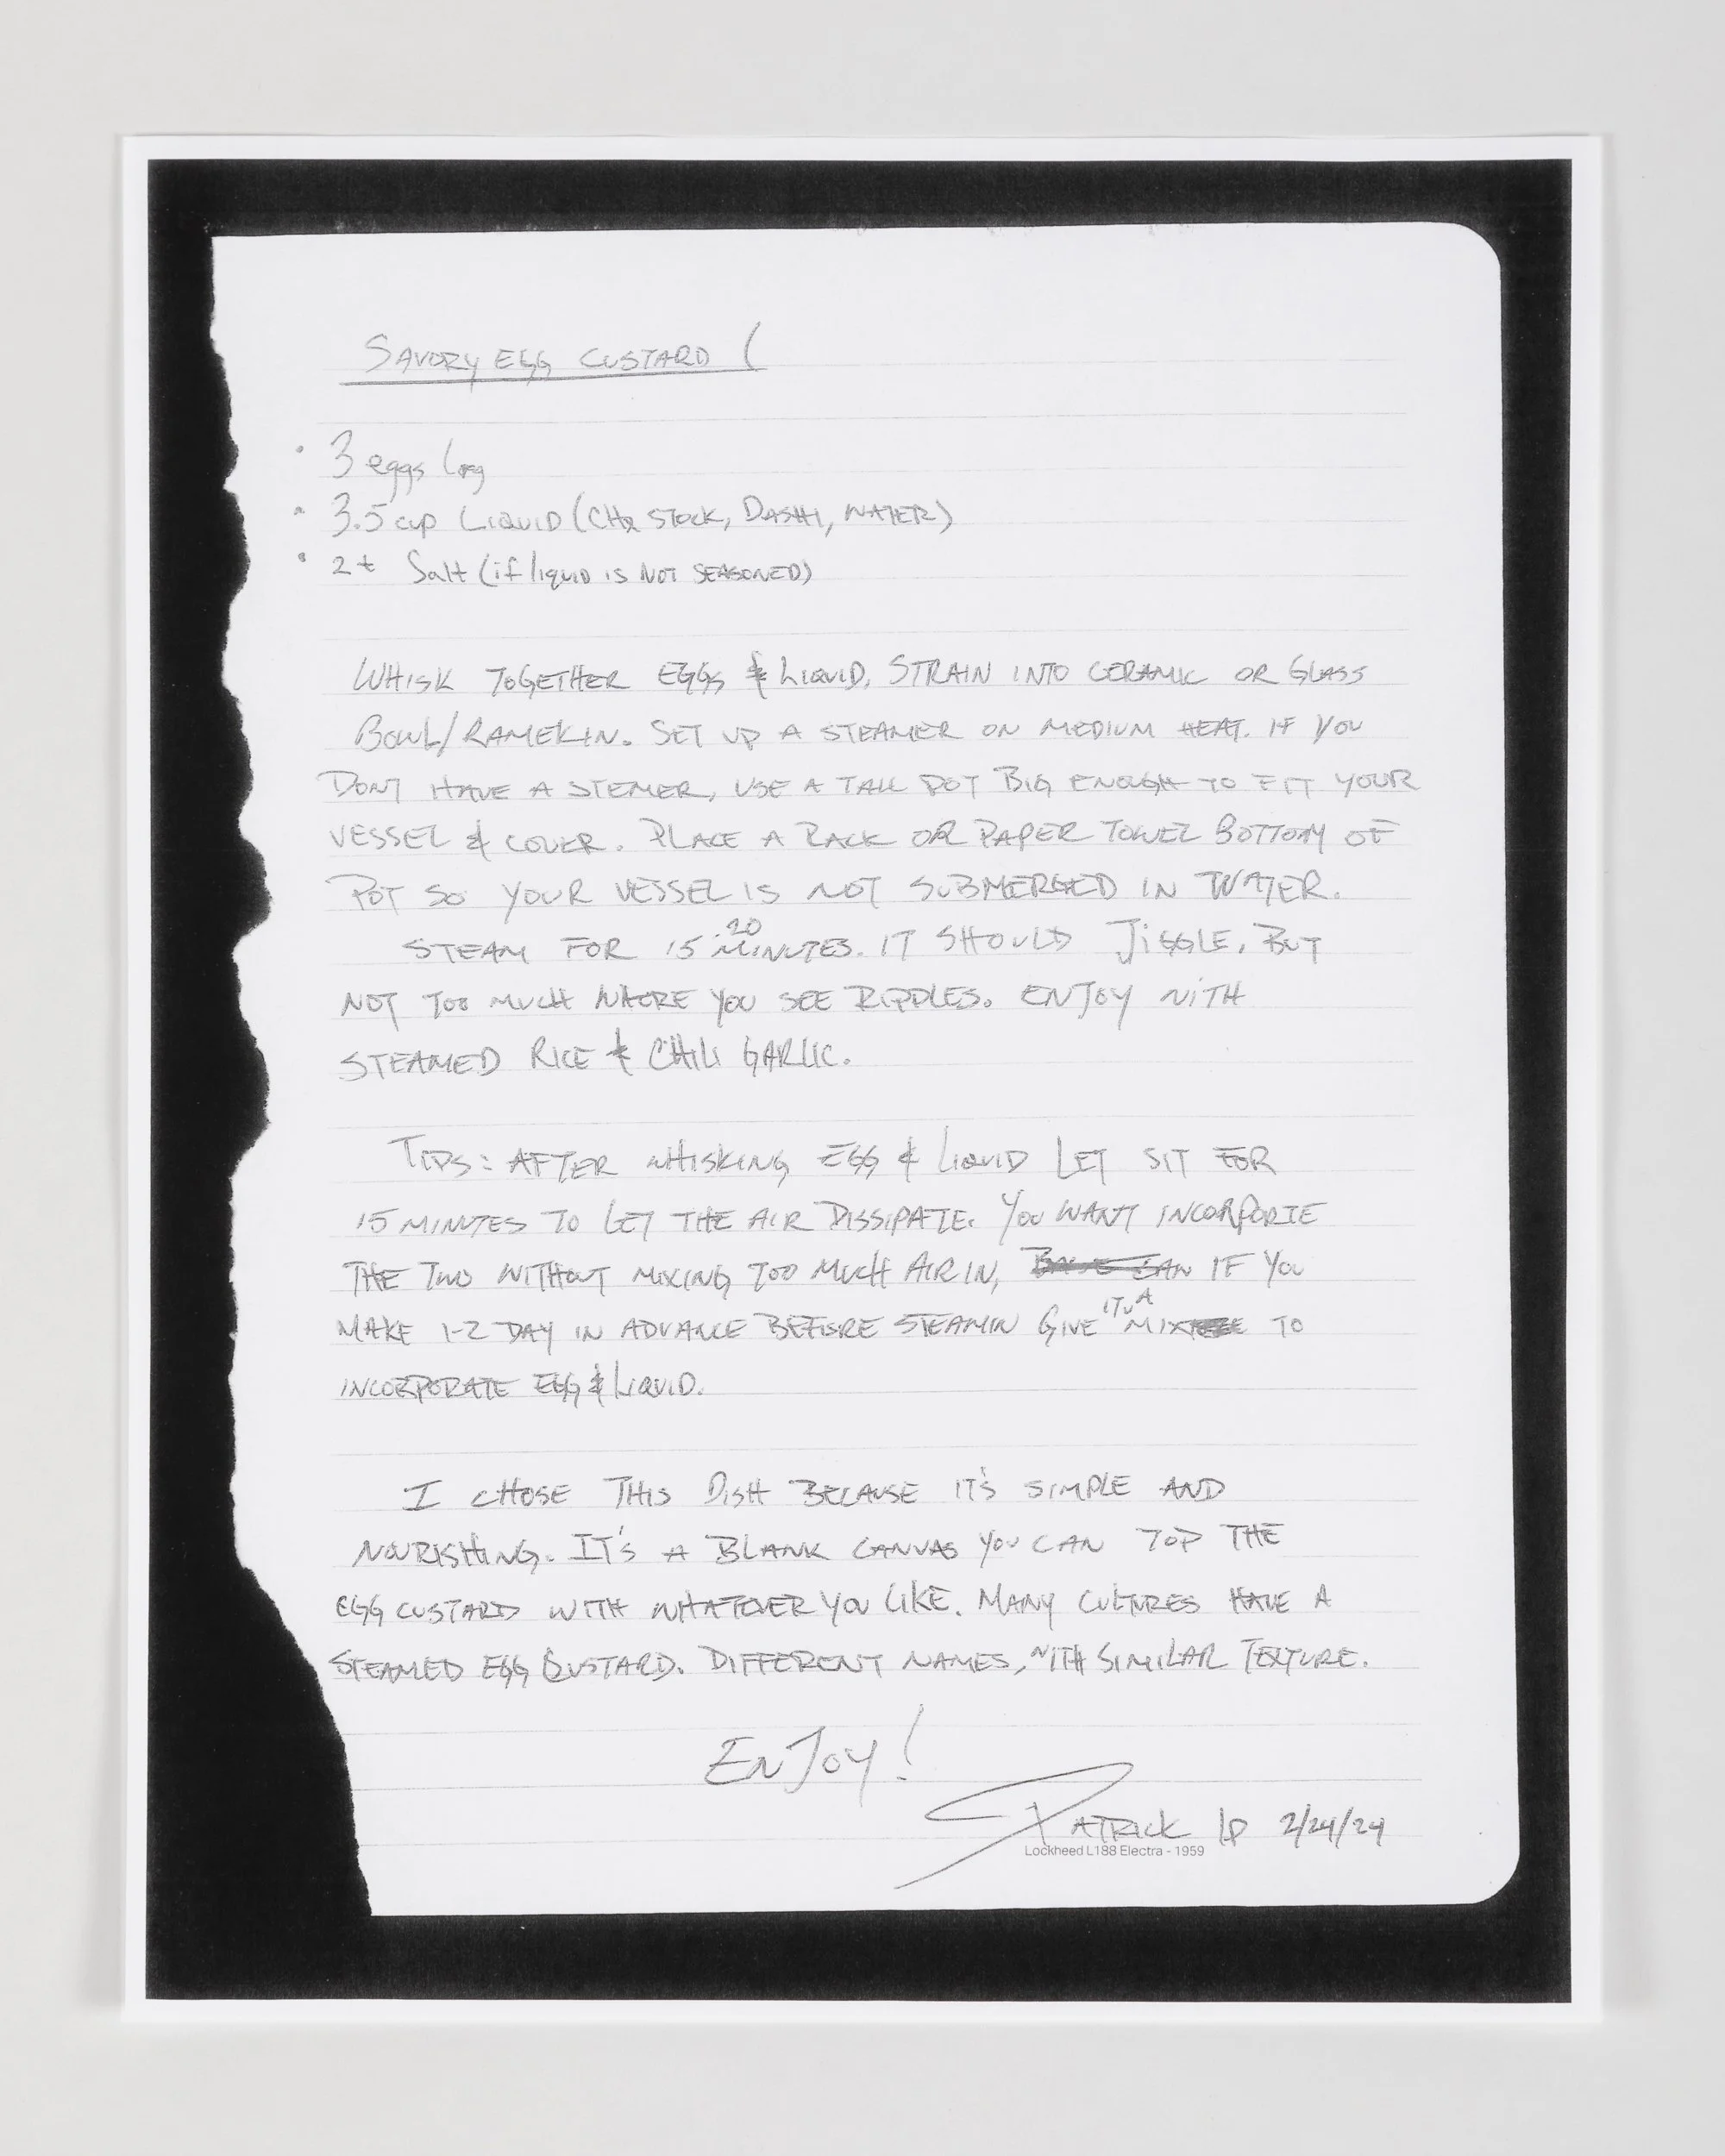 SAVORY EGG CUSTARD (
• 3 eggs lrg
• 3.5 cup LIQUID (CHX STOCK, DASHI, WATER)
• 2t Salt (if liquid is NOT SEASONED)
WHISK TOGETHER EGGS & LIQUID. STRAIN INTO CERAMIC OR GLASS
BOWL/RAMEKIN. SET UP A STEAMER ON MEDIUM HEAT. IF YOU
DON'T HAVE A STEMER, USE A TALL POT BIG ENOUGH TO FIT YOUR
VESSEL & COVER. PLACE A RACK OR PAPER TOWEL BOTTOM OF
POT SO YOUR VESSEL IS NOT SUBMERGED IN WATER.
STEAM FOR 15 20 MINUTES. IT SHOULD JIGGLE, BUT
NOT TOO MUCH WHERE YOU SEE RIPPLES. ENJOY WITH
STEAMED RICE & CHILI GARLIC.
TIPS: AFTER WHISKING EGG & LIQUID LET SIT FOR
15 MINUTES TO LET THE AIR DISSIPATE. YOU WANT INCORPORTE
THE TWO WITHOUT MIXING TOO MUCH AIR IN, IF YOU
MAKE 1-2 DAY IN ADVANCE BEFORE STEAMIN GIVE IT A MIX TO
INCORPORATE EGG & LIQUID.
I CHOSE THIS DISH BECAUSE IT'S SIMPLE AND
NOURISHING. IT'S A BLANK CANVAS YOU CAN TOP THE
EGG CUSTARD WITH WHATEVER YOU LIKE. MANY CULTURES HAVE A
STEAMED EGG CUSTARD. DIFFERENT NAMES, WITH SIMILAR TEXTURE.
ENJOY!
PATRICK IP 2/24/24
Lockheed L188 Electra - 1959